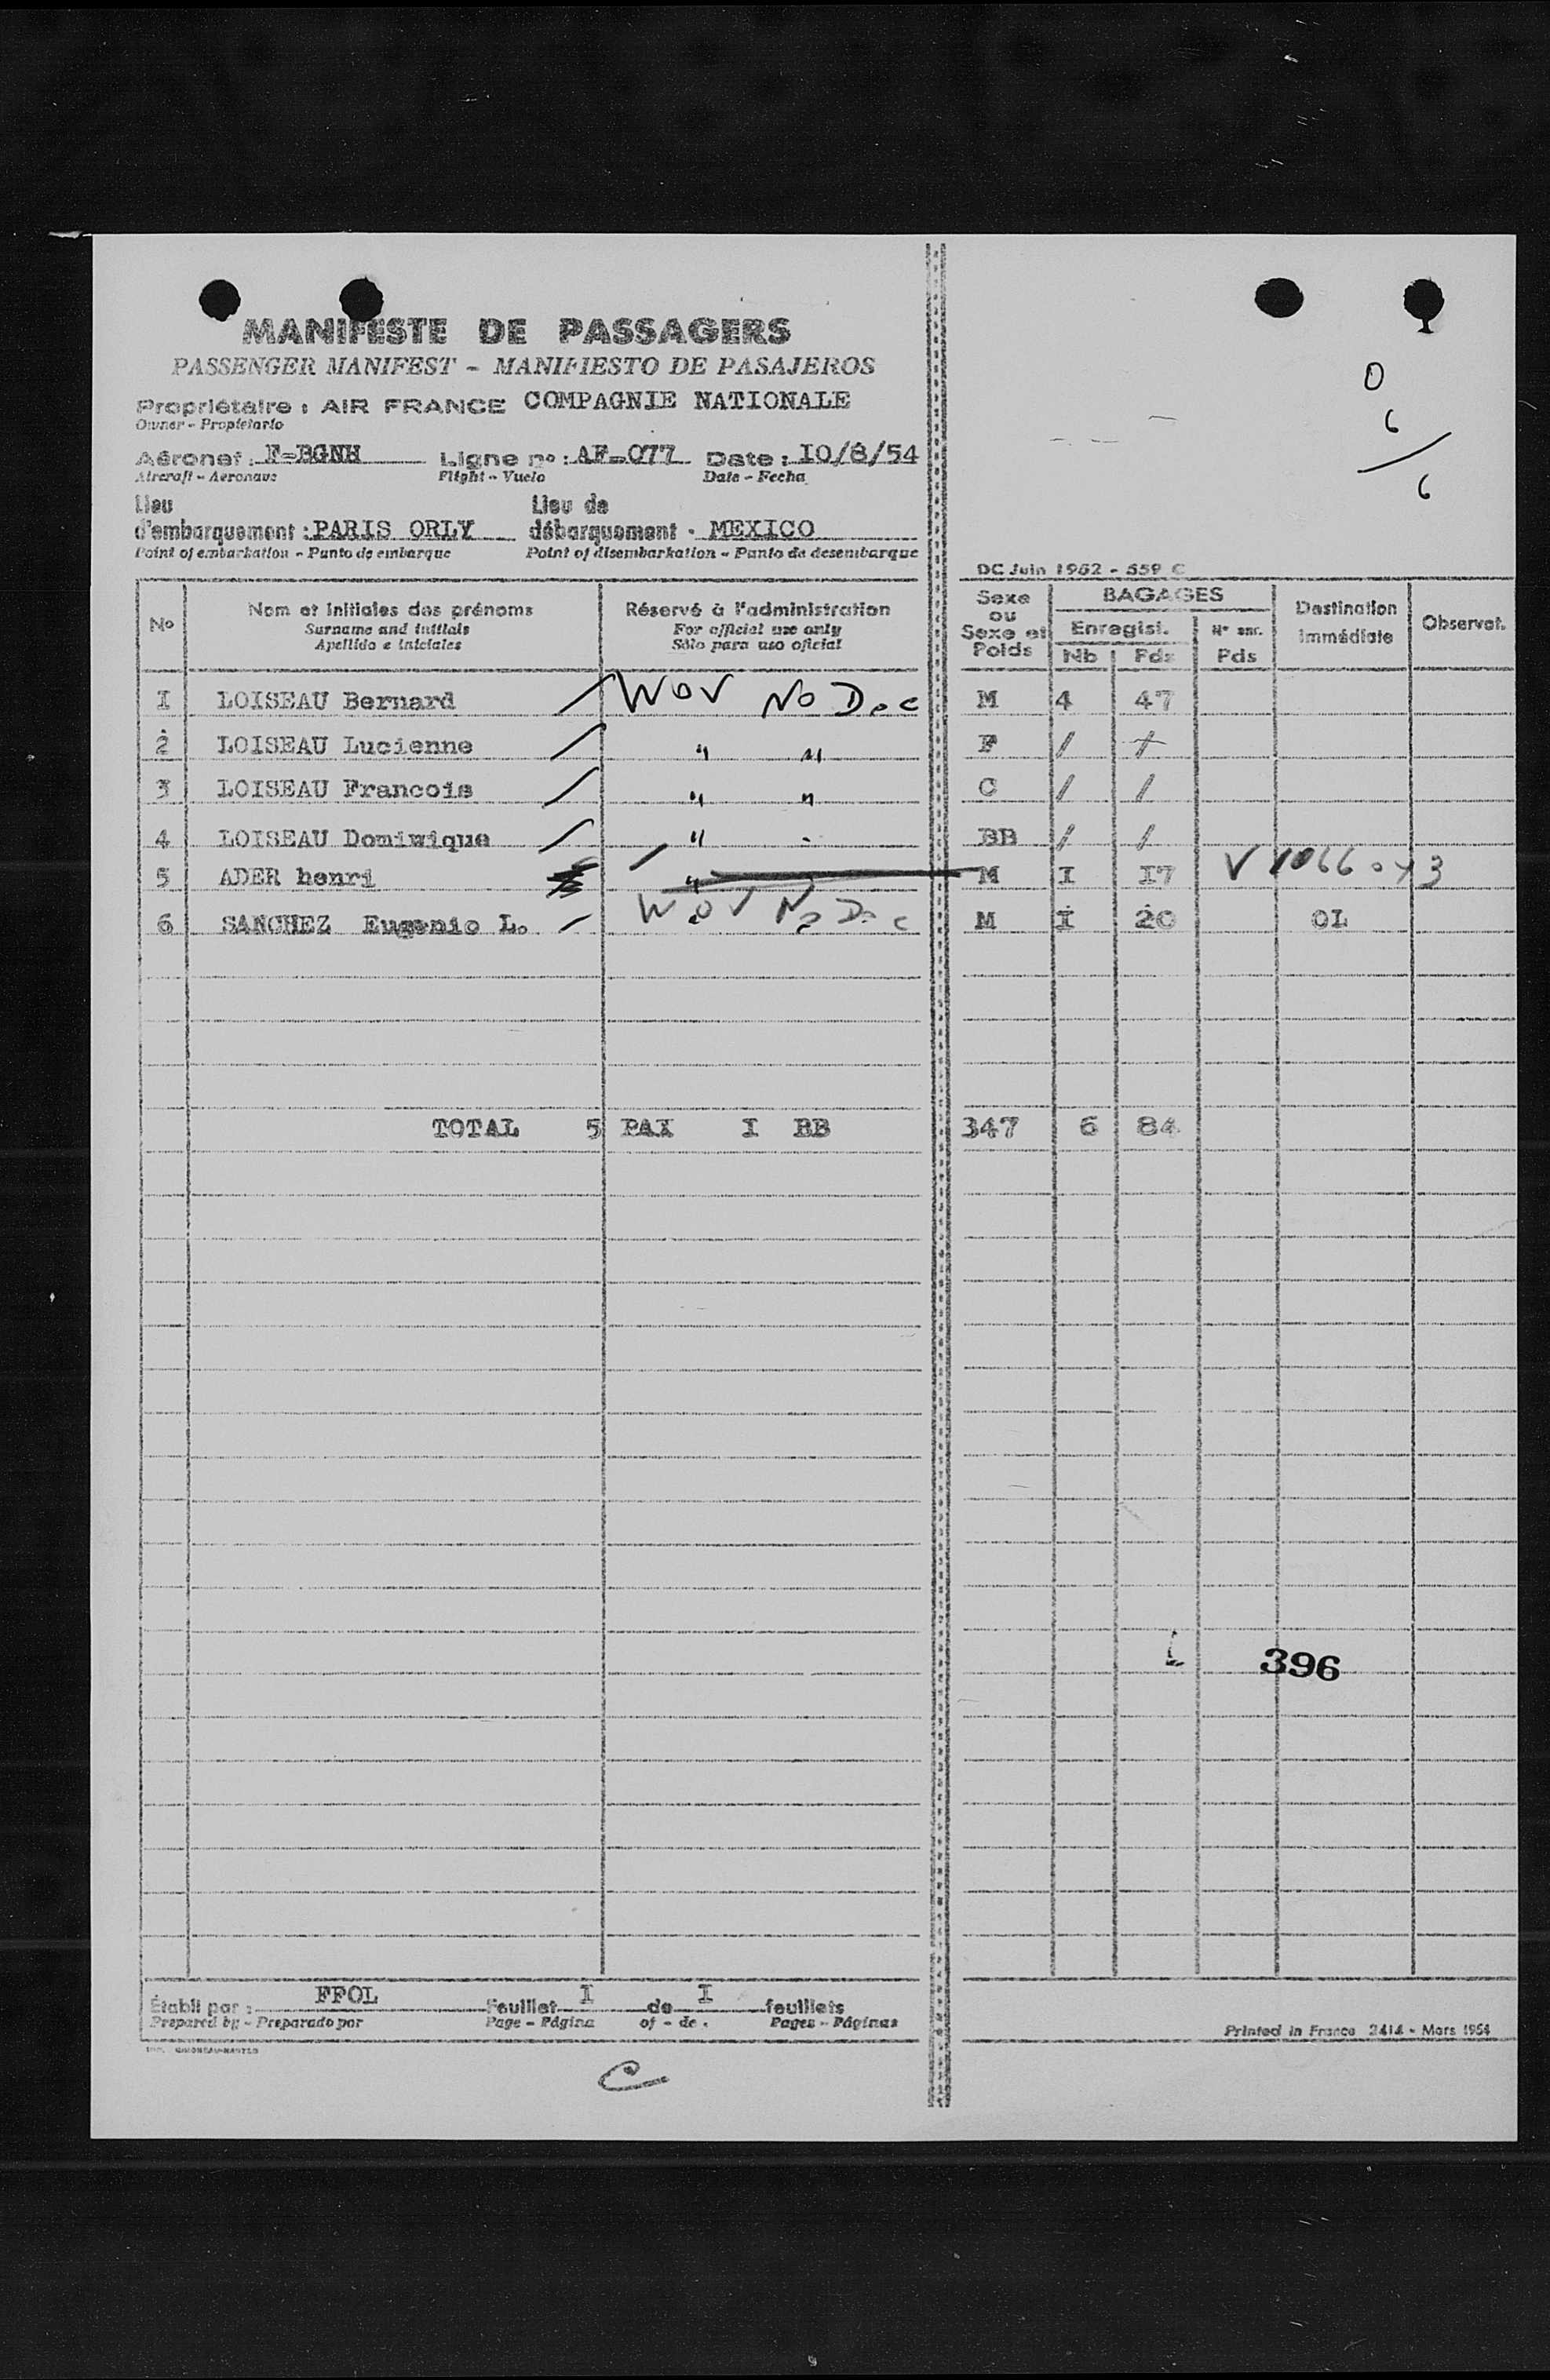 MANIFESTE DE PASSAGERS
PASSENGER MANIFEST - MANIFIESTO DE PASAJEROS
Propriétaire : AIR FRANCE COMPAGNIE NATIONALE
Owner - Propietario
Aéronef : F-BGNH Ligne no : AF-077 Date : IO/8/54
Aircraft - Aeronave Flight - Vuelo Date - Fecha
Lieu Lieu de
d'embarquement : PARIS ORLY débarquement : MEXICO
Point of embarkation - Punto de embarque Point of disembarkation - Punto de desembarque
0
6
6
DC Juin 1952 - 559 C
No Nom et initiales des prénoms Réservé à l'administration Sexe ou Sexe et Poids BAGAGES Destination immédiate Observat.
Surname and initials For official use only Enregist. N° enr.
Apellido e iniciales Sólo para uso oficial Nb Pds Pds
I LOISEAU Bernard / WOV No Doc M 4 47
2 LOISEAU Lucienne / " " F / /
3 LOISEAU Francois / " " C / /
4 LOISEAU Domiwique / " BB / /
5 ADER henri M I I7 V
6 SANCHEZ Eugenio L. / WOV No Doc M I 20 OL
TOTAL 5 PAX I BB 347 6 84
396
Établi par : FFOL Feuillet I de I feuillets
Prepared by - Preparado por Page - Página of - de Pages - Páginas
Printed in France 2414 - Mars 1954
C